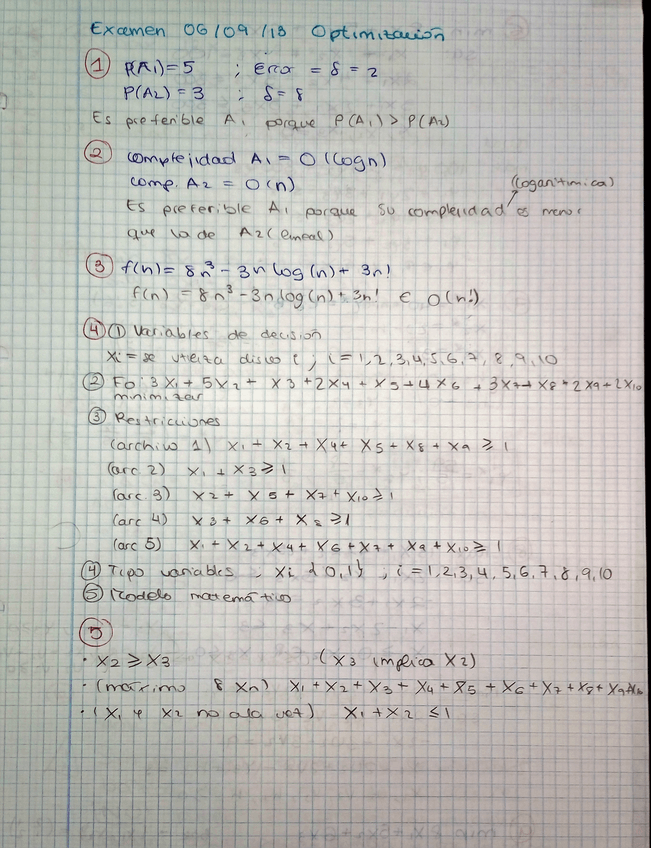 Examen 06/09/18 Optimización
① P(A1)=5 ; Error = δ = 2
P(A2)=3 ; δ=8
Es preferible A1 porque P(A1)>P(A2)
② complejidad A1 = O(logn)
comp. A2 = O(n)
(logaritmica)
Es preferible A1 porque su complejidad es menor
que la de A2(lineal)
③ f(n)= 8n³ - 3n log(n)+ 3n!
f(n) = 8n³ - 3n log(n) + 3n! ∈ O(n!)
④ ① Variables de decisión
Xi = se utiliza disco i ; i=1,2,3,4,5,6,7,8,9,10
② Fo: 3X1 + 5X2 + X3 + 2X4 + X5 + 4X6 + 3X7 + X8 + 2X9 + 2X10
minimizar
③ Restricciones
(archivo 1) X1 + X2 + X4 + X5 + X8 + X9 ≥ 1
(arc 2) X1 + X3 ≥ 1
(arc 3) X2 + X5 + X7 + X10 ≥ 1
(arc 4) X3 + X6 + X8 ≥ 1
(arc 5) X1 + X2 + X4 + X6 + X7 + X9 + X10 ≥ 1
④ Tipo variables, Xi {0,1} ; i=1,2,3,4,5,6,7,8,9,10
⑤ Modelo matemático
⑤
· X2 ≥ X3 (X3 implica X2)
· (máximo 8 Xn) X1 + X2 + X3 + X4 + X5 + X6 + X7 + X8 + X9
· (X1 y X2 no a la vez) X1 + X2 ≤ 1